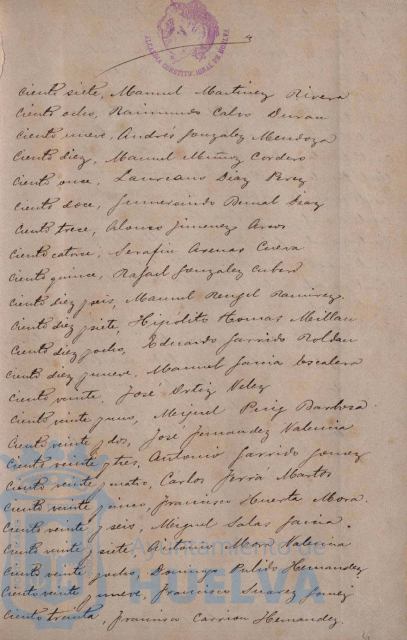 4
ALCALDIA CONSTITUCIONAL DE HUELVA
Ciento siete, Manuel Martinez Rivera
Ciento ocho, Raimundo Calvo Duran
Ciento nueve, Andrés Gonzalez Mendoza
Ciento diez, Manuel Muñoz Cordero
Ciento once, Laureano Diaz Perez
Ciento doce, Gumersindo Bernal Diaz
Ciento trece, Alonso Jimenez
Ciento catorce, Serafin Arenas Cueva
Ciento quince, Rafael Gonzalez Cubero
Ciento diez y seis, Manuel Rengel Ramirez
Ciento diez y siete, Hipólito Millan
Ciento diez y ocho, Eduardo Garrido Roldan
Ciento diez y nueve, Manuel Garcia Escalera
Ciento veinte, José Ortiz Velez
Ciento veinte y uno, Miguel Puig Barbosa
Ciento veinte y dos, José Fernandez Valencia
Ciento veinte y tres, Antonio Garrido Gomez
Ciento veinte y cuatro, Carlos Martos
Ciento veinte y cinco, Francisco Huerta Mora.
Ciento veinte y seis, Miguel Salas Garcia.
Ciento veinte y siete, Antonio Mora Valencia
Ciento veinte y ocho, Domingo Pulido Hernandez
Ciento veinte y nueve, Francisco Suarez Gomez
Ciento treinta, Francisco Carrion Hernandez.
Ayuntamiento de
HUELVA